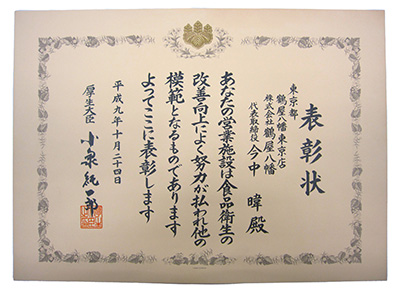 表彰状
東京都
鶴屋八幡東京店
株式会社鶴屋八幡
代表取締役 今中 暲 殿
あなたの営業施設は食品衛生の
改善向上によく努力が払われ他の
模範となるものであります
よってここに表彰します
平成九年十月二十四日
厚生大臣 小泉純一郎